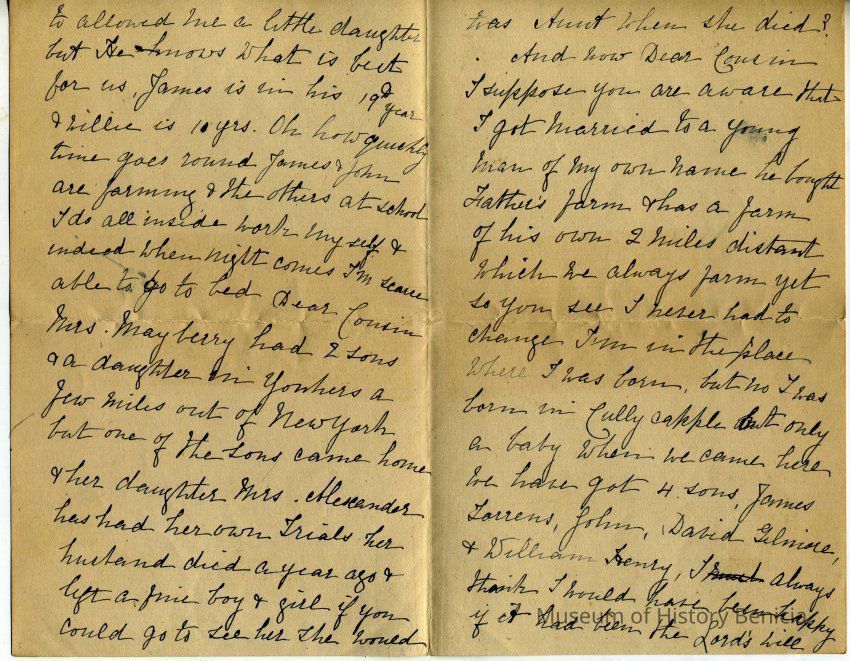 was Aunt when she died?
. And now Dear Cousin
I suppose you are aware that
I got married to a young
man of my own name he bought
Father's farm & has a farm
of his own 2 miles distant
which we always farm yet
so you see I never had to
change I'm in the place
where I was born, but no I was
born in Cullycapple but only
a baby when we came here
we have got 4 sons, James
Torrens, John, David Gilmore,
& William Henry, I must always
think I would have been happy
if it had been the Lord's will
to allowed me a little daughter
but He knows what is best
for us, James is in his 19th year
& Willie is 10 yrs. Oh how quickly
time goes round James & John
are farming & the others at school
I do all inside work myself &
indeed when night comes I'm scarce
able to go to bed Dear Cousin
Mrs. Mayberry had 2 sons
& a daughter in Yonkers a
few miles out of New York
but one of the sons came home
& her daughter Mrs. Alexander
has had her own Trials her
husband died a year ago &
left a fine boy & girl if you
could go to see her she would
Museum of History Benicia